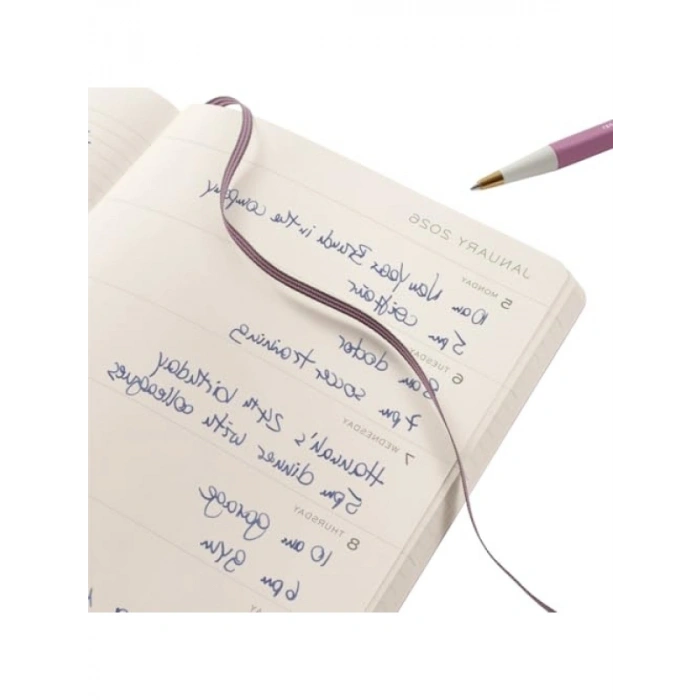 JANUARY 2026
5 MONDAY
10 am New Year Brunch in the company
2 pm coiffeur
6 TUESDAY
8 am doctor
7 pm soccer training
7 WEDNESDAY
Hannah's 24th birthday
5 pm dinner with colleagues
8 THURSDAY
10 am garage
6 pm gym